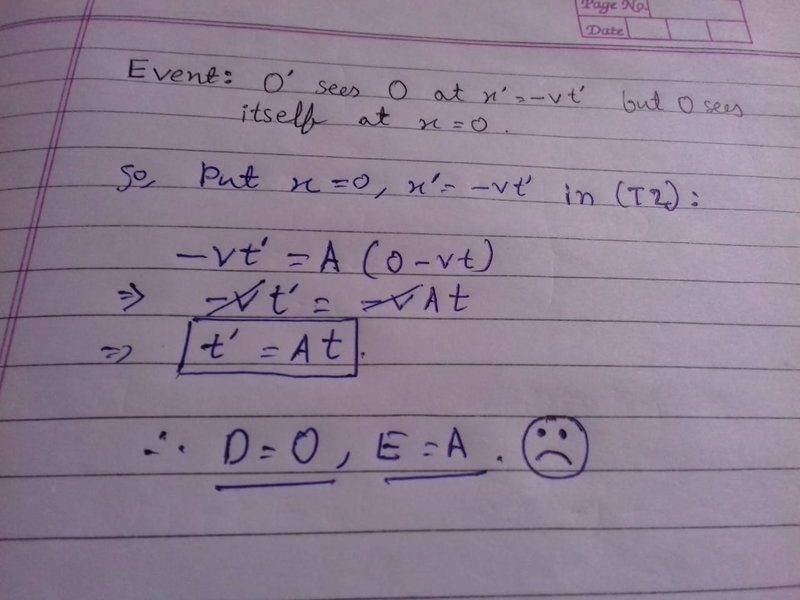 Page No.
Date
Event: O' sees O at x'=-vt' but O sees
itself at x=0.
So, Put x=0, x'=-vt' in (T2):
-vt' = A (0-vt)
⇒ -vt' = -vAt
⇒ t' = At.
∴ D=0, E=A.